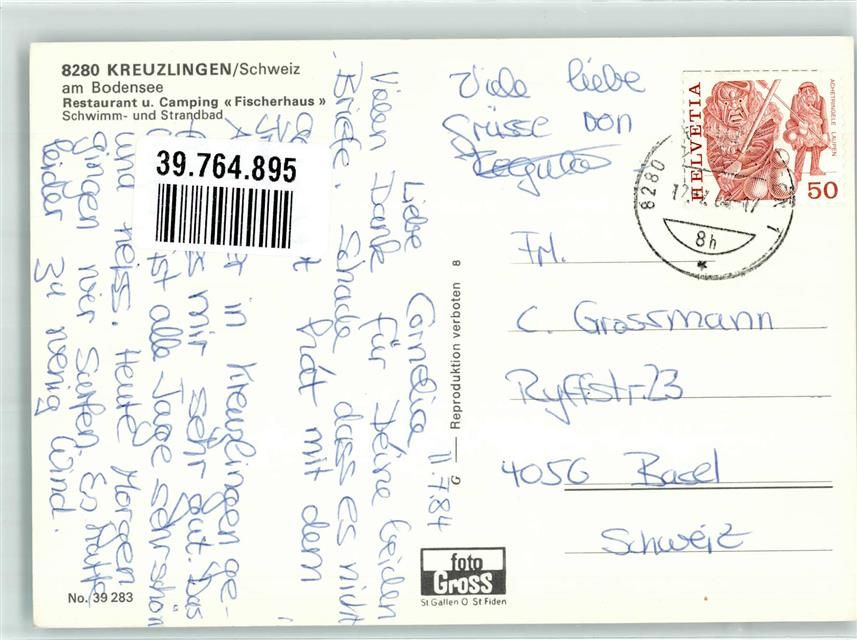 8280 KREUZLINGEN/Schweiz
am Bodensee
Restaurant u. Camping « Fischerhaus »
Schwimm- und Strandbad
39.764.895
Liebe Cornelia 11.7.84
Vielen Dank für Deine beiden
Briefe. Schade, dass es nicht
hat mit dem
in Kreuzlingen ge-
mir sehr gut. Das
ist alle Tage sehr schön
und heiss. Heute Morgen
gingen wir Surfen. Es hatte
leider zu wenig Wind.
Viele liebe
Grüsse von
HELVETIA
ACHETRINGELE LAUPEN
50
8280
1
8h
Frl.
C. Grossmann
Ryffstr. 23
4056 Basel
Schweiz
G — Reproduktion verboten 8
foto
Gross
St Gallen O St Fiden
No. 39 283